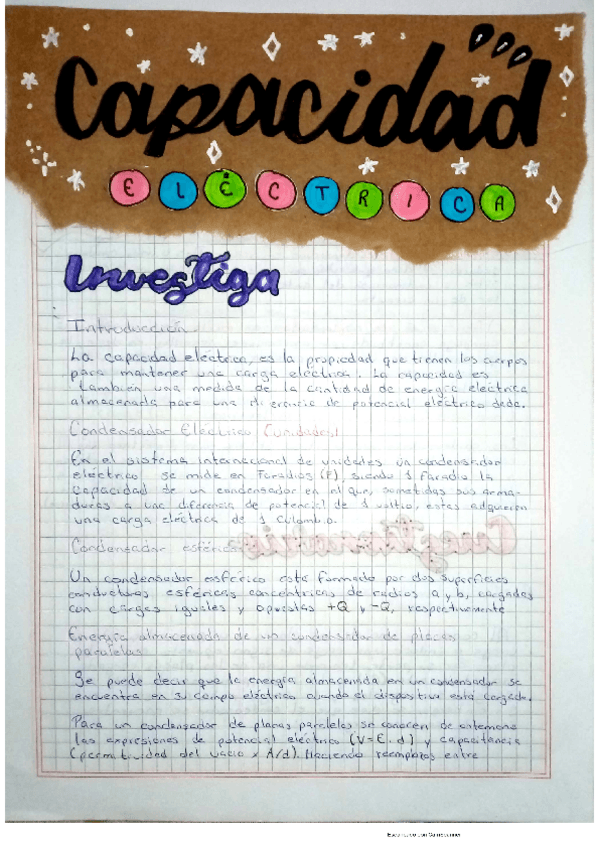 Capacidad
ELÉCTRICA
Investiga
Introducción
La capacidad eléctrica, es la propiedad que tienen los cuerpos
para mantener una carga eléctrica. La capacidad es
también una medida de la cantidad de energía eléctrica
almacenada para una diferencia de potencial eléctrico dada.
Condensador Eléctrico (unidades)
En el sistema internacional de unidades un condensador
eléctrico se mide en Faradios (F), siendo 1 faradio la
capacidad de un condensador en el que, sometidas sus arma-
duras a una diferencia de potencial de 1 voltio, estas adquieren
una carga eléctrica de 1 culombio.
Cuestionario
Condensador esférico
Un condensador esférico está formado por dos superficies
conductoras esféricas concentricas de radios a y b, cargadas
con cargas iguales y opuestas +Q y -Q, respectivamente
Energía almacenada de un condensador de placas
paralelas
Se puede decir que la energía almacenada en un condensador se
encuentra en su campo eléctrico cuando el dispositivo está cargado.
Para un condensador de placas paralelas se conocen de antemano
las expresiones de potencial eléctrico (V=E.d) y capacitancia
(permitividad del vacío x A/d). Haciendo reemplazos entre
Escaneado con CamScanner